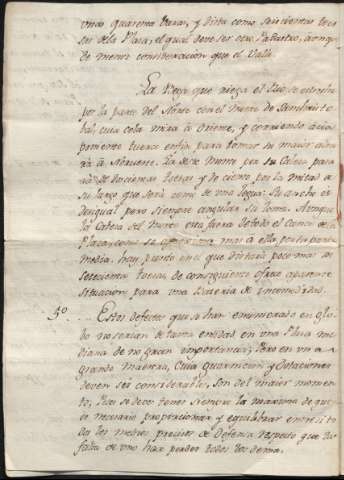 unas quarenta varas, y dista como seiscientas toe
ses de la Plaza, el qual deve ser otro Padrastro, aunq
de menos consideracion que el Valle
La Vega que riega el Rio se estrecha
por la parte del Norte con el monte de San
bal, cuia cola mira à Oriente, y corriendo
Poniente tuerce
à Norueste. La de este Monte por su Cabeza
de doscientas toesas, y de ciento por la mitad de
su largo que será como de una legua: Su ancho es
desigual pero siempre angular su loma. Aunque
la Cabeza del Monte esta fuera de todo el Cañon de la
Plaza, como se aproxima mas à ella por la parte
media, hay punto en que distará poco mas de
setecientas toesas, de consiguiente ofrece aparente
situacion para una Bateria de Incomodidad.
5º Estos defectos que se han enumerado en glo
bo no serian de tanta entidad en una Plaza me
diana de no gran importancia; Pero en una
grande maestra, Cuia guarnicion y Dotaciones
deven ser considerables, son del maior momen
to, Pues se deve tener siempre la maxima de que
es necesario proporcionar y equilibrar entre si to
dos los medios precisos de Defensa respecto que la
falta de uno hace perder todos los demas.